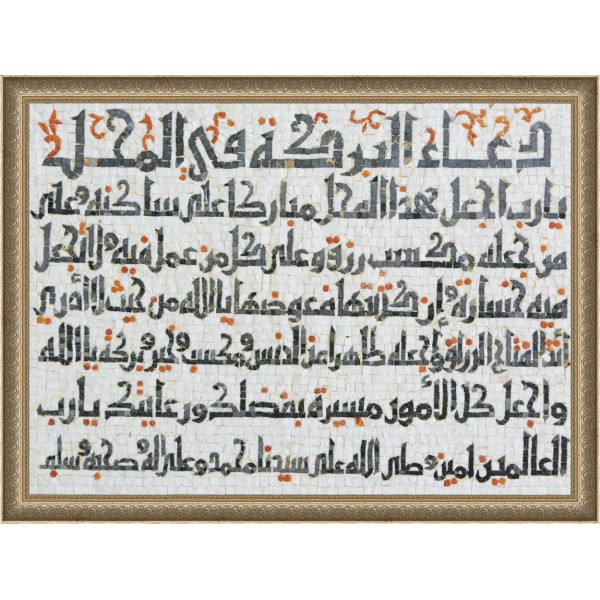 دعاء البركة في المحل
يارب اجعل هذا المحل مباركا على ساكنه وعلى
من جعله مكسب رزق وعلى كل من عمل فيه ولا تجعل
فيه خسارة و إن كتبتها معوضها يا الله من حيث لا أدري
أنت الفتاح الرزاق واجعله طاهرا من الدنس و مكسب و خير و بركة يا الله
واجعل كل الأمور ميسرة بفضلك ورعايتك يارب
العالمين امين و صلى الله على سيدنا محمد و على اله و صحبه و سلم